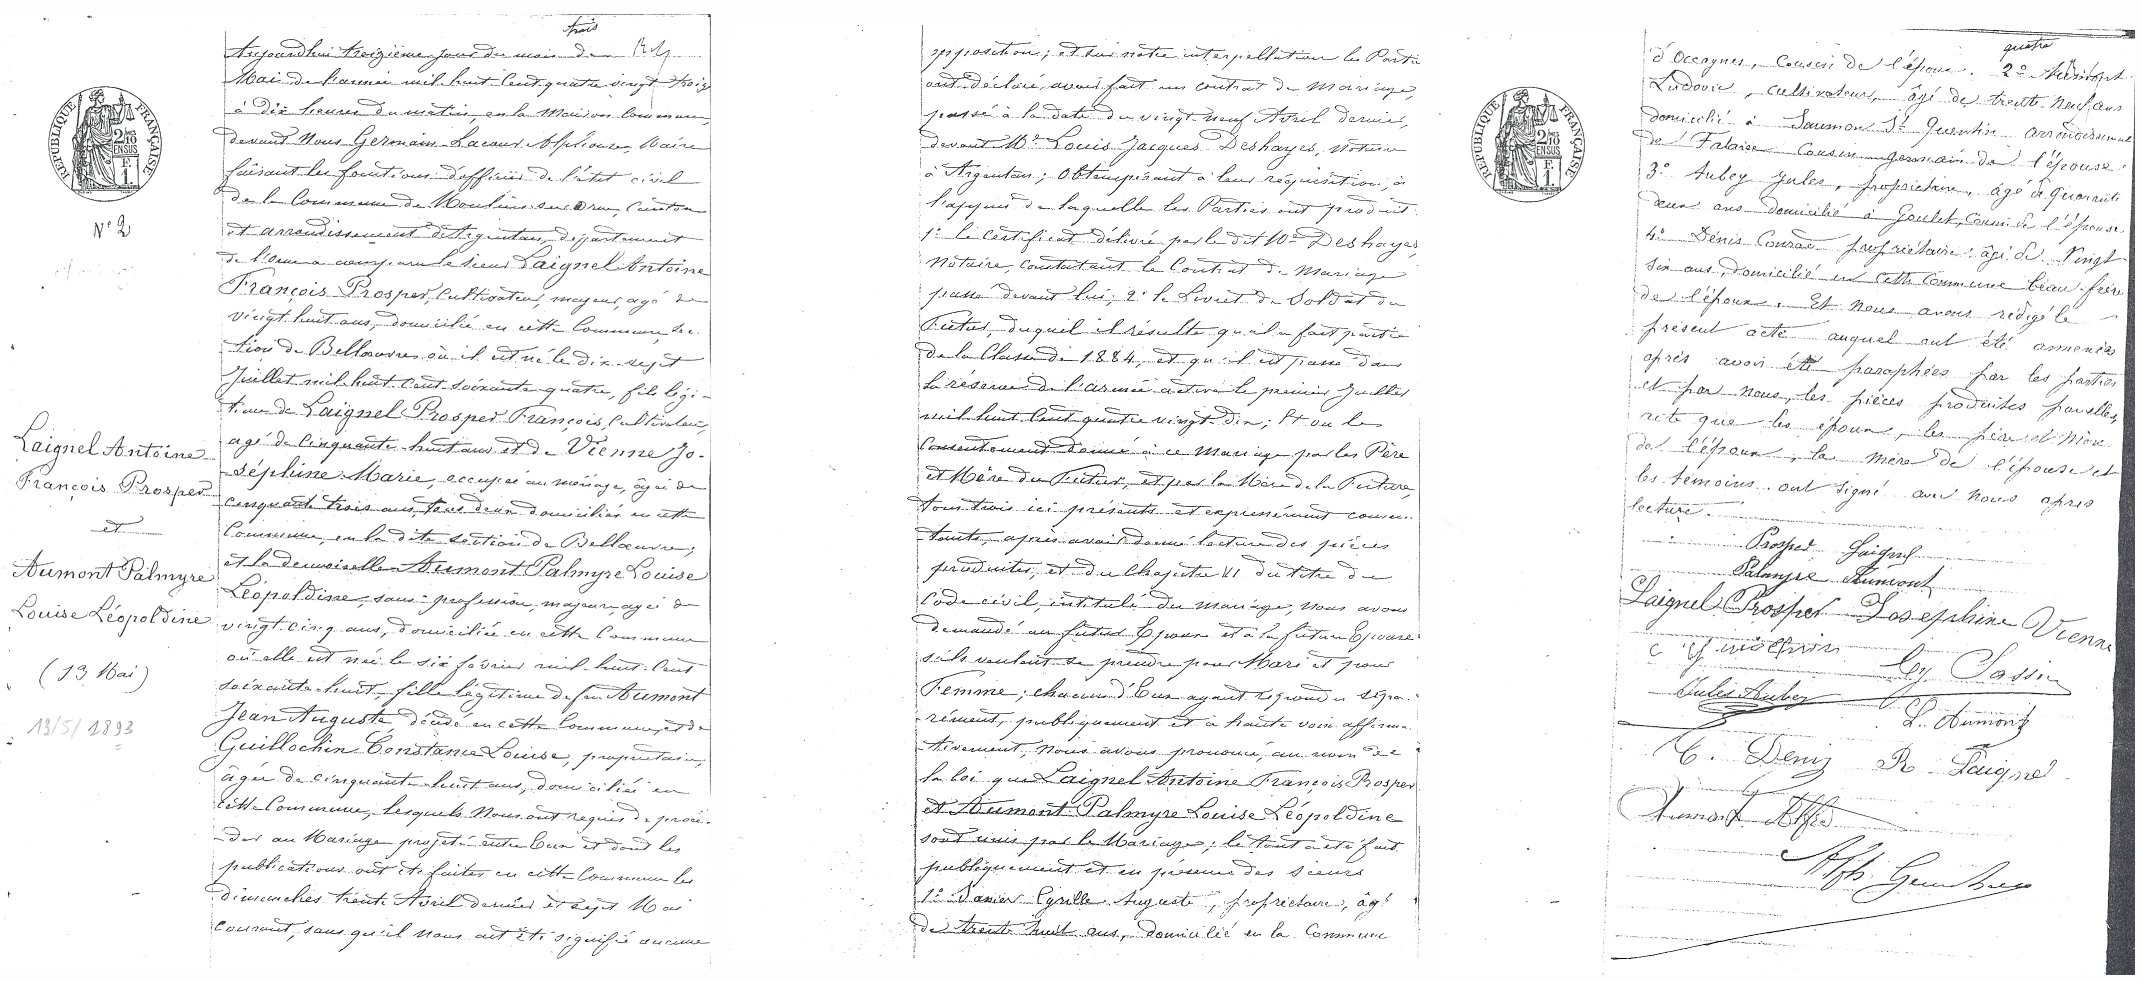 trois
Aujourd'hui treizième jour du mois de
Mai de l'année mil huit cent quatre vingt treize
à dix heures du matin, en la Maison Commune,
devant Nous Germain Lacour Alphonse, Maire
faisant les fonctions d'officier de l'état civil
de la Commune de Moulins-sur-Orne, Canton
et arrondissement d'Argentan, département
de l'Orne a comparu le sieur Laignel Antoine
François Prosper, Cultivateur, majeur, agé de
vingt huit ans, domicilié en cette Commune, sec-
tion de Belloeuvre où il est né le dix-sept
Juillet mil huit cent soixante quatre, fils légi-
time de Laignel Prosper François, Cultivateur,
agé de Cinquante huit ans et de Vienne Jo-
séphine Marie, occupée au ménage, âgée de
cinquante trois ans, tous deux domiciliés en cette
Commune en la dite section de Belloeuvre;
et la demoiselle Aumont Palmyre Louise
Léopoldine, sans profession, majeure, agée de
vingt cinq ans, domiciliée en cette Commune
où elle est née le six février mil huit cent
soixante huit, fille légitime de feu Aumont
Jean Auguste décédé en cette Commune, et de
Guillochin Constance Louise, propriétaire,
âgée de cinquante huit ans, domiciliée en
cette Commune, lesquels Nous ont requis de procé-
der au Mariage projeté entre Eux et dont les
publications ont été faites en cette Commune les
dimanches trente Avril dernier et sept Mai
courant, sans qu'il nous ait été signifié aucune
RÉPUBLIQUE FRANÇAISE
2 DES 10 EN SUS
F. 1.
N° 2
Laignel Antoine
François Prosper
et
Aumont Palmyre
Louise Léopoldine
(13 Mai)
13/5/1893
opposition; et sur notre interpellation les Parties
ont déclaré avoir fait un contrat de mariage,
passé à la date du vingt neuf Avril dernier,
devant Me Louis Jacques Deshayes, Notaire
à Argentan; Obtempérant à leur réquisition, à
l'appui de laquelle les Parties ont produit:
1° le certificat délivré par le dit Me Deshayes,
Notaire, constatant le Contrat de Mariage
passé devant lui; 2° le Livret de Soldat du
Futur, duquel il résulte qu'il a fait partie
de la Classe de 1884, et qu'il est passé dans
la réserve de l'armée active le premier Juillet
mil huit cent quatre vingt dix; Et vu le
Consentement donné à ce Mariage par les Père
et Mère du Futur, et par la Mère de la Future,
tous trois ici présents et expressément consen-
tants, après avoir donné lecture des pièces
produites, et du Chapitre VI du titre du
Code civil, intitulé du mariage, nous avons
demandé au futur Epoux et à la future Epouse
s'ils veulent se prendre pour Mari et pour
Femme; chacun d'Eux ayant répondu sépa-
rément, publiquement et à haute voix affirma-
tivement, nous avons prononcé, au nom de
la loi que Laignel Antoine François Prosper
et Aumont Palmyre Louise Léopoldine
sont unis par le Mariage; le tout a été fait
publiquement et en présence des sieurs
1° Cyrille Auguste, propriétaire, âgé
de trente huit ans, domicilié en la Commune
RÉPUBLIQUE FRANÇAISE
2 DES 10 EN SUS
F. 1.
quatre
d'Occagnes, Cousin de l'époux. 2° Aumont
Ludovic, cultivateur, âgé de trente neuf ans
domicilié à Saumont St Quentin arrondissement
de Falaise Cousin germain de l'épouse.
3° Aubey Jules, propriétaire, âgé de quarante
deux ans domicilié à Goulet, Cousin de l'épouse
4° Denis Conrad propriétaire âgé de Vingt
six ans, domicilié en cette Commune beau-frère
de l'époux. Et nous avons rédigé le
présent acte auquel ont été annexées
après avoir été paraphées par les parties
et par nous, les pièces produites par elles,
que les époux, les père et Mère
de l'époux, la mère de l'épouse et
les témoins ont signé avec nous après
lecture.
Prosper Laignel
Palmyre Aumont
Laignel Prosper Josephine Vienne
Jules Aubey
L. Aumont
C. Denis R. Laignel
Aumont
Alph.